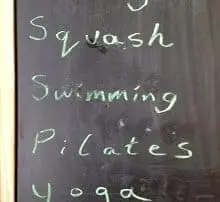 Squash
Swimming
Pilates
yoga